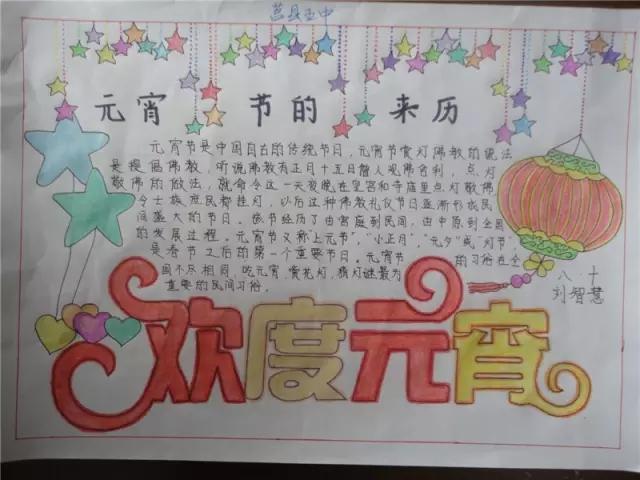 莒县五中
元宵节的来历
元宵节是中国自古的传统节日，元宵节赏灯佛教的说法
是提倡佛教，听说佛教有正月十五日僧人观佛舍利，点灯
敬佛的做法，就命令这一天夜晚在皇宫和寺庙里点灯敬佛
令士族庶民都挂灯，以后这种佛教礼仪节日逐渐形成民
间盛大的节日。该节经历了由宫庭到民间，由中原到全国
的发展过程。元宵节又称"上元节"，"小正月"，"元夕"或"灯节"，
是春节之后的第一个重要节日。元宵节的习俗在全
国不尽相同，吃元宵、赏花灯、猜灯谜最为
重要的民间习俗。
八·十
刘智慧
欢度元宵